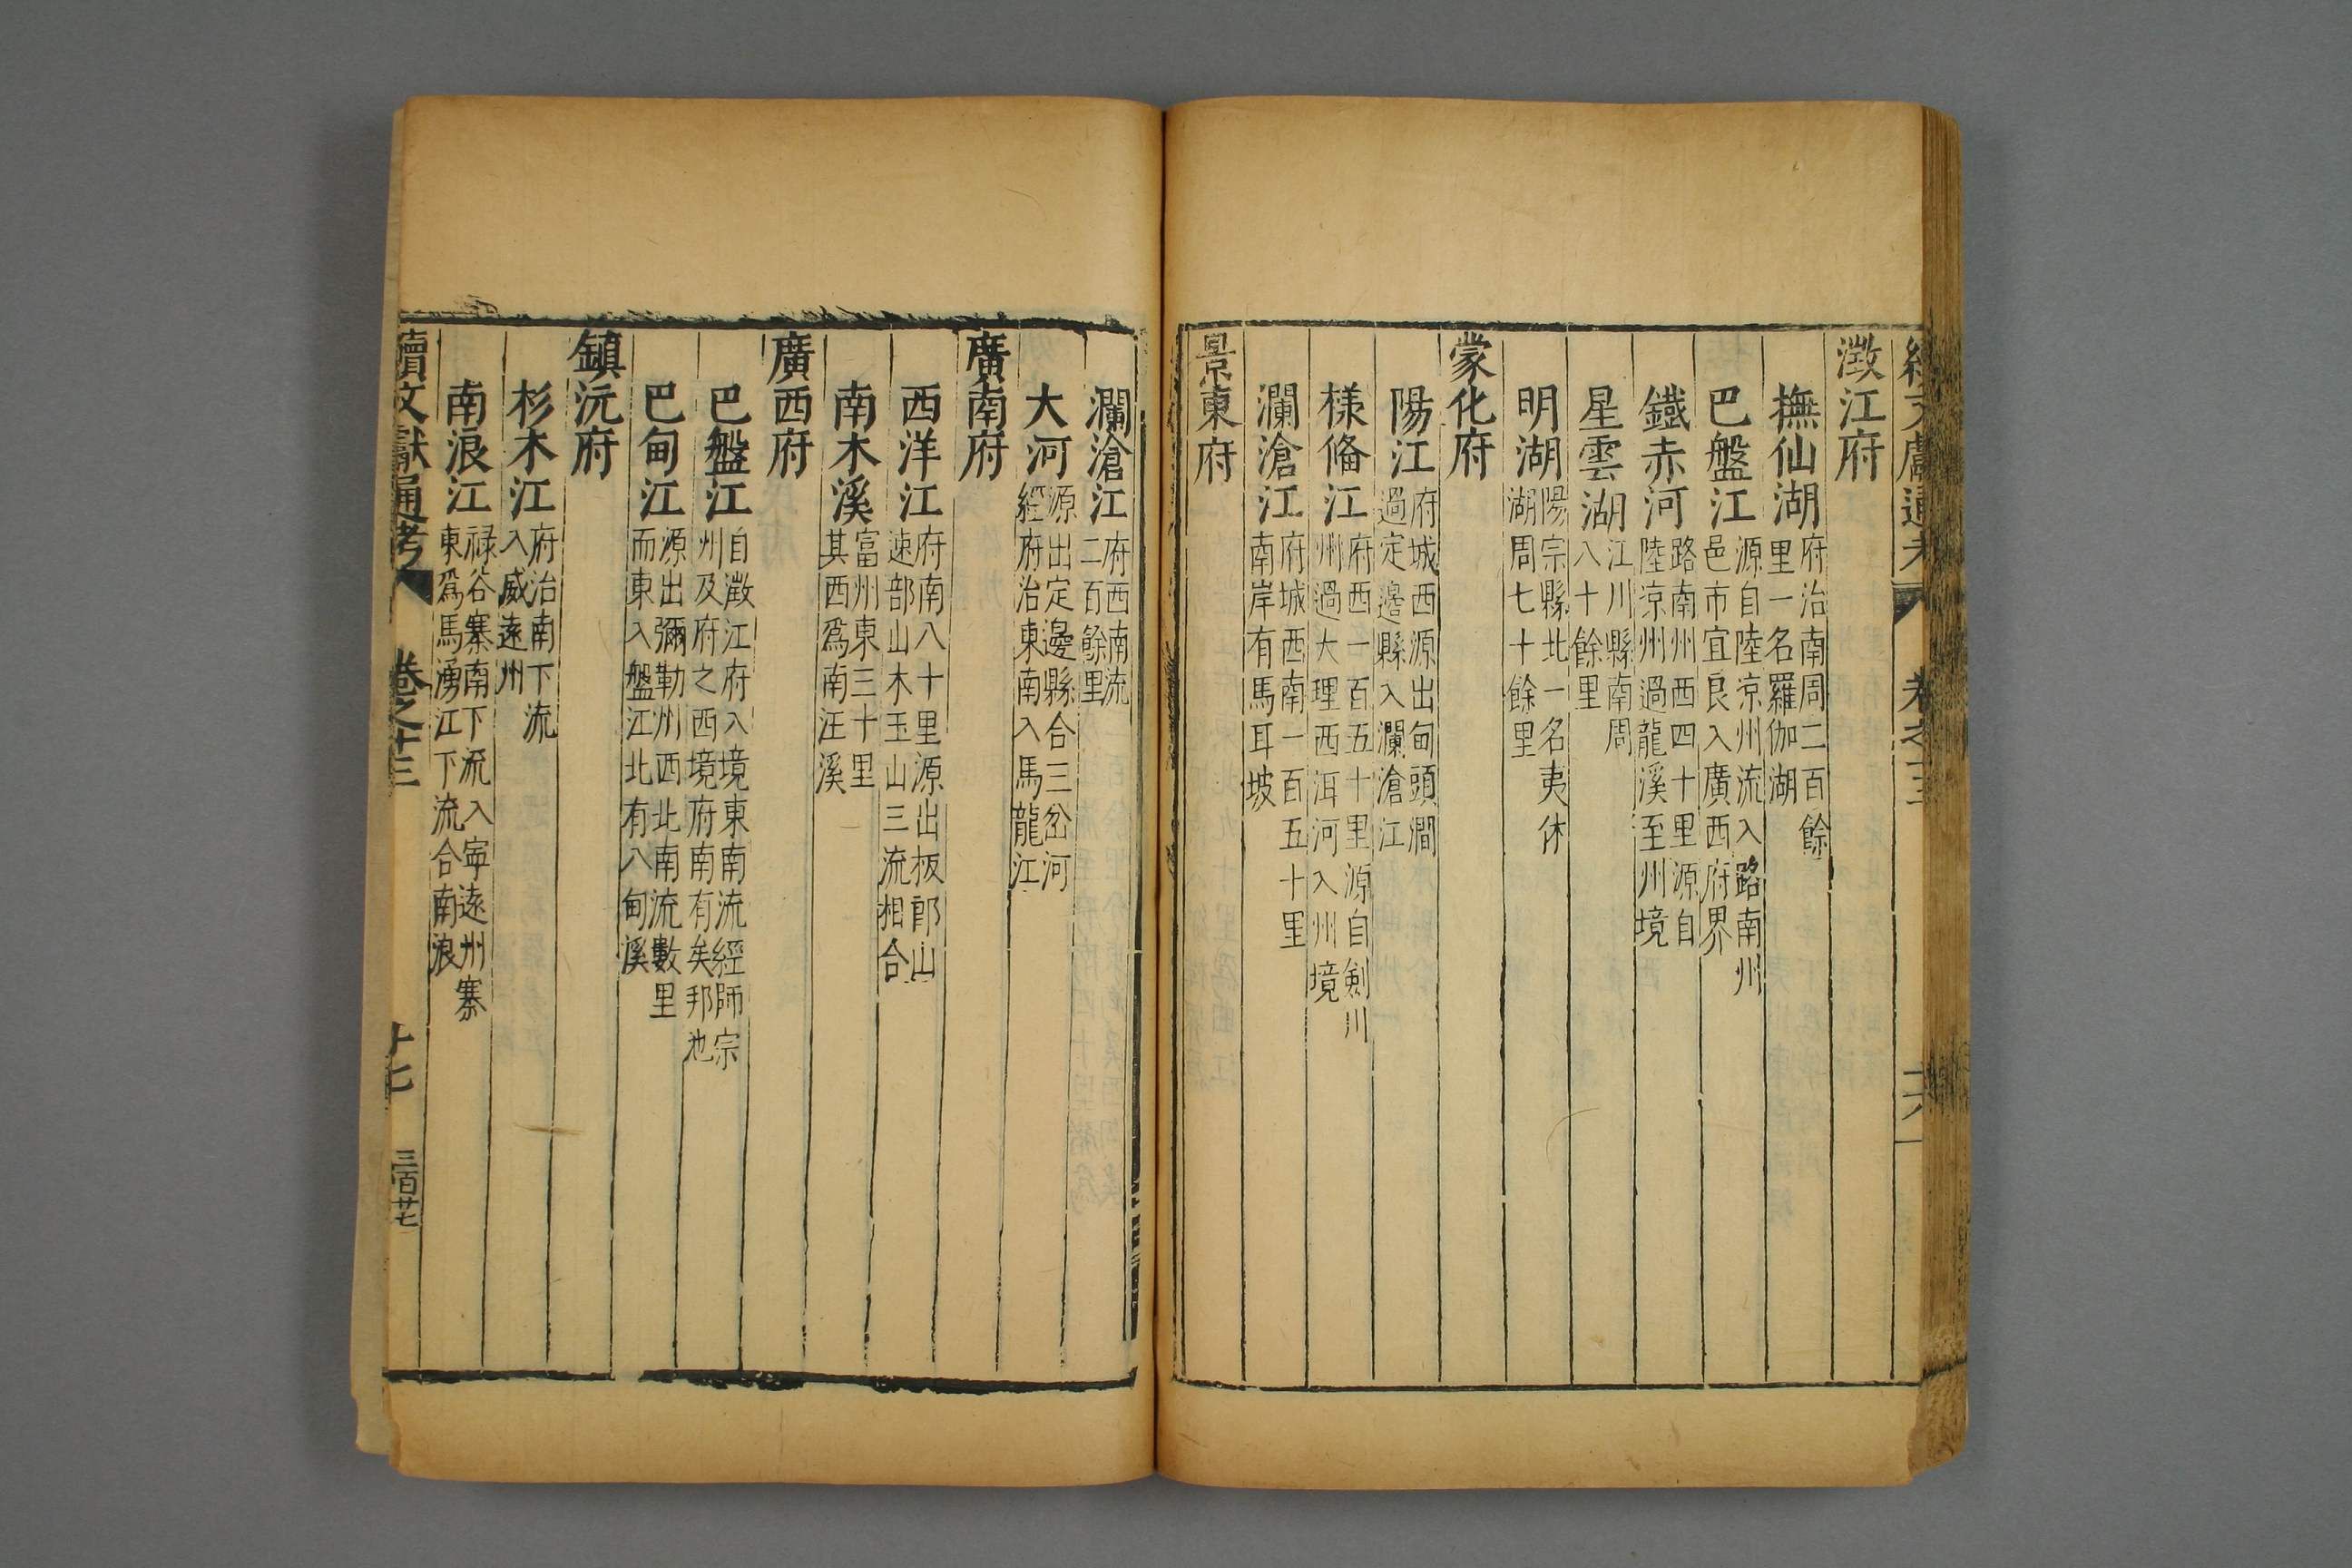 澂江府
撫仙湖 府治南周二百餘里一名羅伽湖
巴盤江 源自陸涼州流入路南州邑市宜良入廣西府界
鐵赤河 路南州西四十里源自陸涼州過龍溪至州境
星雲湖 江川縣南周八十餘里
明湖 陽宗縣北一名夷休湖周七十餘里
蒙化府
陽江 府城西源出甸頭澗過定邊縣入瀾滄江
樣備江 府西一百五十里源自劍川州過大理西洱河入州境
瀾滄江 府城西南一百五十里南岸有馬耳坡
景東府
瀾滄江 府西南流二百餘里
大河 源出定邊縣合三岔河經府治東南入馬龍江
廣南府
西洋江 府南八十里源出板郎山速部山木玉山三流相合
南木溪 富州東三十里其西爲南汪溪
廣西府
巴盤江 自澂江府入境東南流經師宗州及府之西境府南有矣邦池
巴甸江 源出彌勒州西北南流數里而東入盤江北有八甸溪
鎮沅府
杉木江 府治南下流入威遠州
南浪江 禄谷寨南下流入寧遠州寨東爲馬湧江下流合南浪
續文獻通考 卷之十三 十七 三百廿七